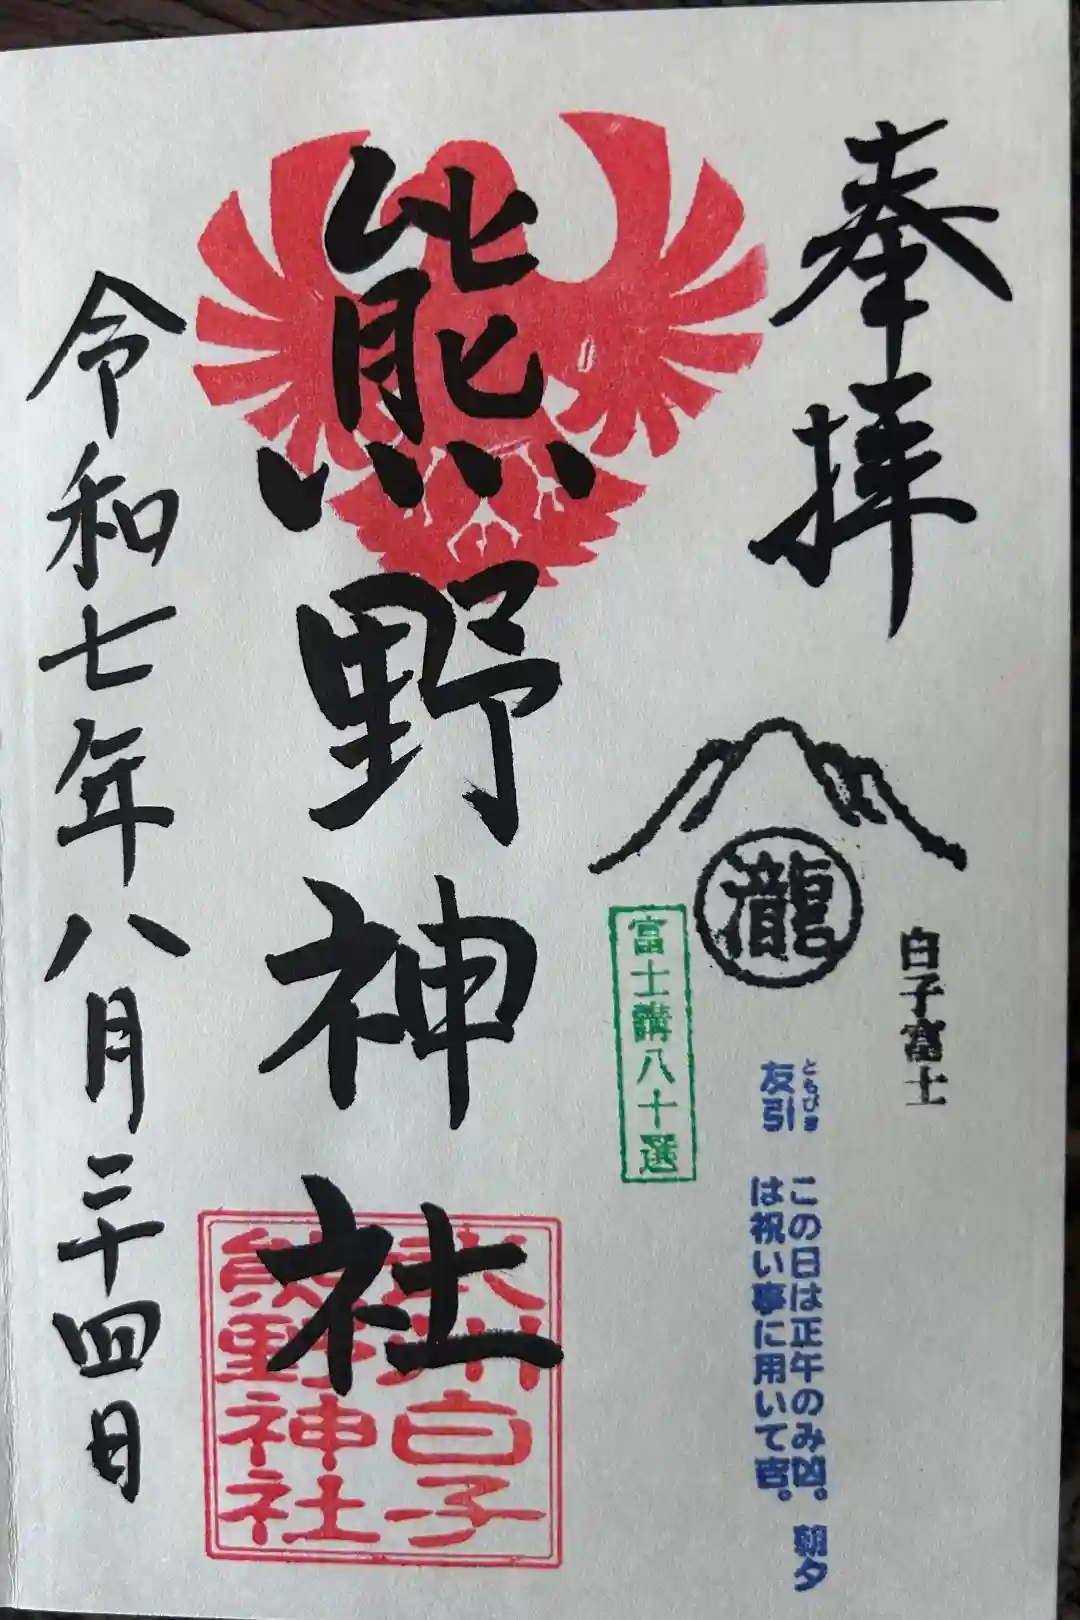 奉拝
白子富士
瀧
ともびき
友引
この日は正午のみ凶。朝夕
は祝い事に用いて吉。
富士講八十選
熊野神社
武州白子
熊野神社
令和七年八月二十四日